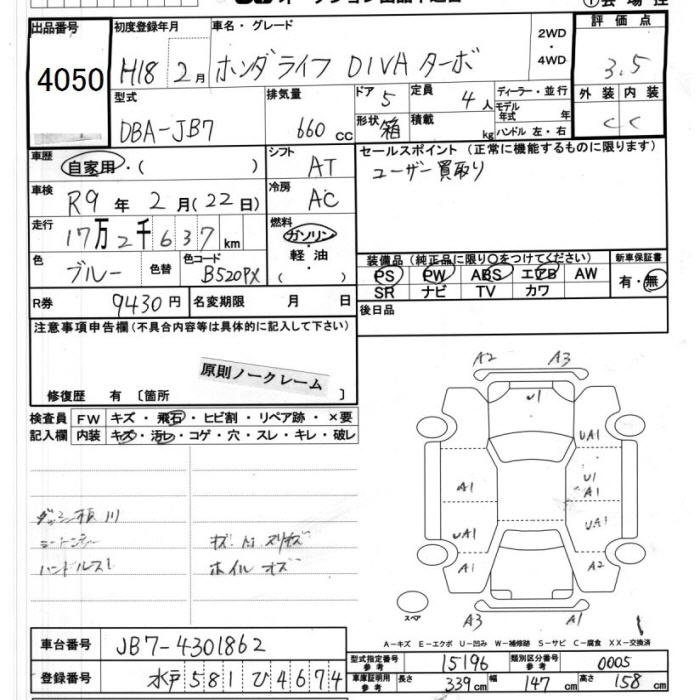 出品番号
4050
初度登録年月
H18 2月
車名・グレード
ホンダライフ DIVA ターボ
2WD
4WD
評価点
3.5
型式
DBA-JB7
排気量
660 cc
ドア 5
形状 箱
定員 4人
積載 kg
ディーラー・並行
モデル年式 年
ハンドル 左・右
外装 内装
C C
車歴
自家用・( )
シフト
AT
セールスポイント (正常に機能するものに限ります)
ユーザー買取り
車検
R9年2月(22日)
冷房
AC
走行
17万2千637km
燃料
ガソリン・軽油・( )
色
ブルー
色替
色コード
B520PX
装備品 (純正品に限り〇をつけてください)
PS PW ABS エアB AW
SR ナビ TV カワ
新車保証書
有・無
R券
9430円
名変期限 月 日
後日品
注意事項申告欄(不具合内容等は具体的に記入して下さい)
原則ノークレーム
修復歴 有 [箇所 ]
検査員 FW キズ・飛石・ヒビ割・リペア跡・×要
記入欄 内装 キズ・汚レ・コゲ・穴・スレ・キレ・破レ
ホイルキズ
A2 A3
U1
UA1
A1 U1
A1
UA1 UA1
A1 A2
スペア
A3 A1
A-キズ E-エクボ U-凹み W-補修跡 S-サビ C-腐食 XX-交換済
車台番号
JB7-4301862
登録番号
水戸 581 ひ 4674
型式指定番号 参考 15196 類別区分番号 参考 0005
車庫証明用 参考 長さ 339cm 幅 147cm 高さ 158cm